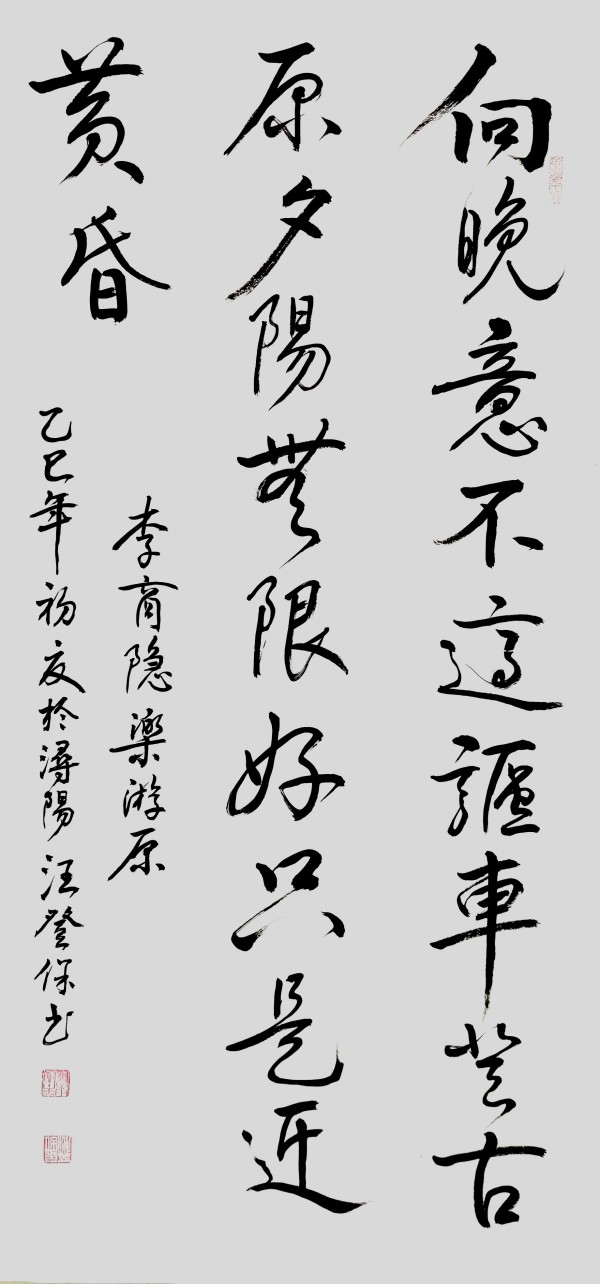 向晚意不適謳車登古
原夕陽無限好只是近
黄昏
李商隐樂游原
乙巳年初夏於潯陽汪登保书